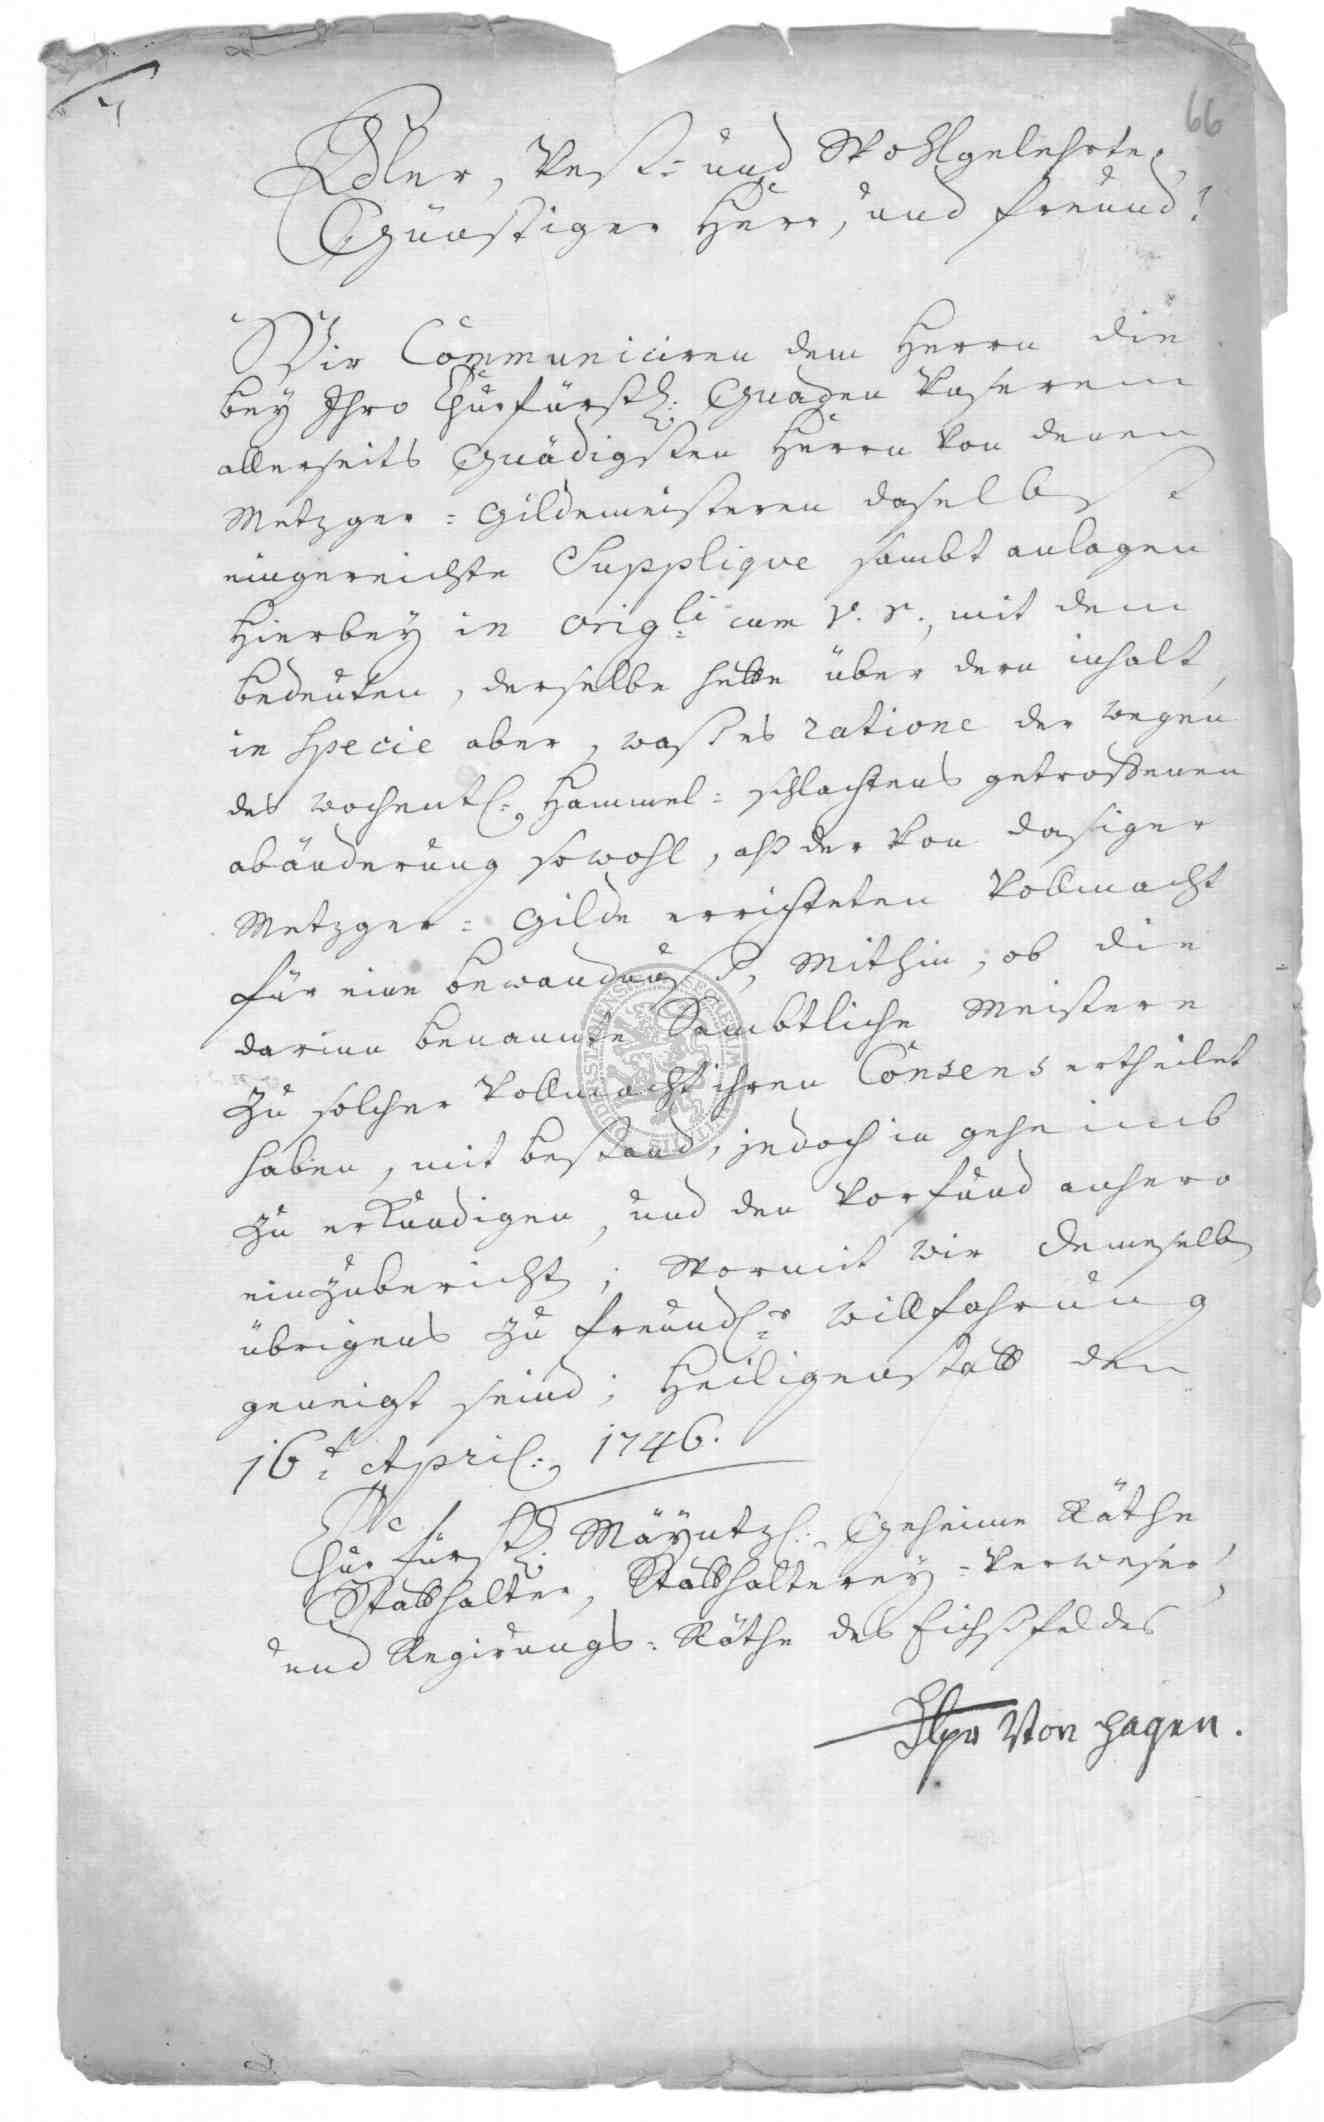 66
Edler, Vest= und Wohlgelehrter,
Günstiger Herr, und freund!
Wir Communiciren dem Herrn die
bey Ihro Churfürstl: Gnaden Unserem
allerseits Gnädigsten Herrn von denen
Metzger=Gildemeisteren daselbst
eingereichte Supplique sambt anlagen
hierbey in origli cum p. r., mit dem
bedeuten, derselbe hette über dern inhalt,
in specie aber, waß es ratione der wegen
des wochentl: Hammel=schlachtens getroffenen
abänderung sowohl, alß der von dasiger
Metzger=Gilde errichteten Vollmacht
für eine bewandnuß, Mithin, ob die
darinn benannte Sambtliche Meistere
zu solcher Vollmacht ihren Consens ertheilet
haben, mit bestand, jedoch in geheimb
zu erkundigen, und den Vorfund anhero
einzubericht; Wormit wir demeselb
übrigens zu freundlr willfahrung
geneigt seind; Heiligenstatt den
16t April: 1746.
Churfürstl: Mäyntzl: Geheime Räthe
Statthalter, Statthalterey=Verweser,
und Regirungs=Räthe des Eichßfeldes
Von Hagen.